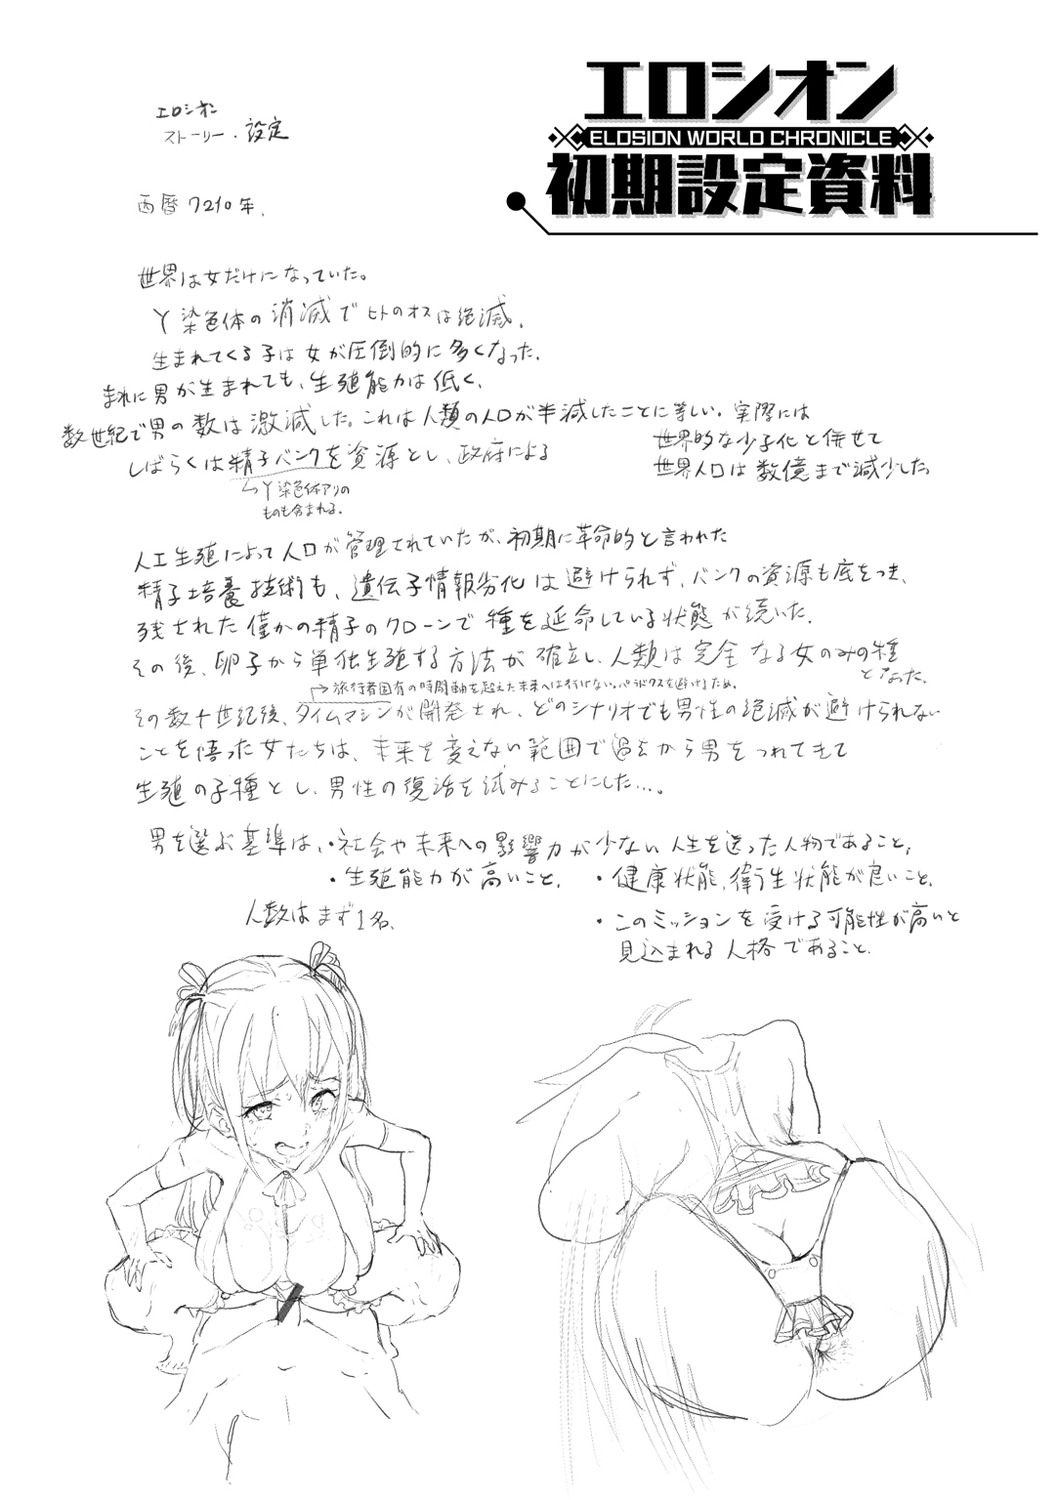 エロシオン
ELOSION WORLD CHRONICLE
初期設定資料
エロシオン
ストーリー・設定
西暦7210年、
世界は女だけになっていた。
Y染色体の消滅でヒトのオスは絶滅。
生まれてくる子は女が圧倒的に多くなった。
まれに男が生まれても、生殖能力は低く、
数世紀で男の数は激減した。これは人類の人口が半減したことに等しい。実際には
世界的な少子化と併せて
世界人口は数億まで減少した。
しばらくは精子バンクを資源とし、政府による
↳Y染色体アリの
ものも含まれる。
人工生殖によって人口が管理されていたが、初期に革命的と言われた
精子培養技術も、遺伝子情報劣化は避けられず、バンクの資源も底をつき、
残された僅かの精子のクローンで種を延命している状態が続いた。
その後、卵子から単独生殖する方法が確立し、人類は完全なる女のみの種
となった。
→旅行者固有の時間軸を超えた未来へは行けない。パラドクスを避けるため。
その数十世紀後、タイムマシンが開発され、どのシナリオでも男性の絶滅が避けられない
ことを悟った女たちは、未来を変えない範囲で過去から男をつれてきて
生殖の子種とし、男性の復活を試みることにした…。
男を選ぶ基準は、・社会や未来への影響力が少ない人生を送った人物であること。
・生殖能力が高いこと。・健康状態、衛生状態が良いこと。
人数はまず1名、
・このミッションを受ける可能性が高いと
見込まれる人格であること。